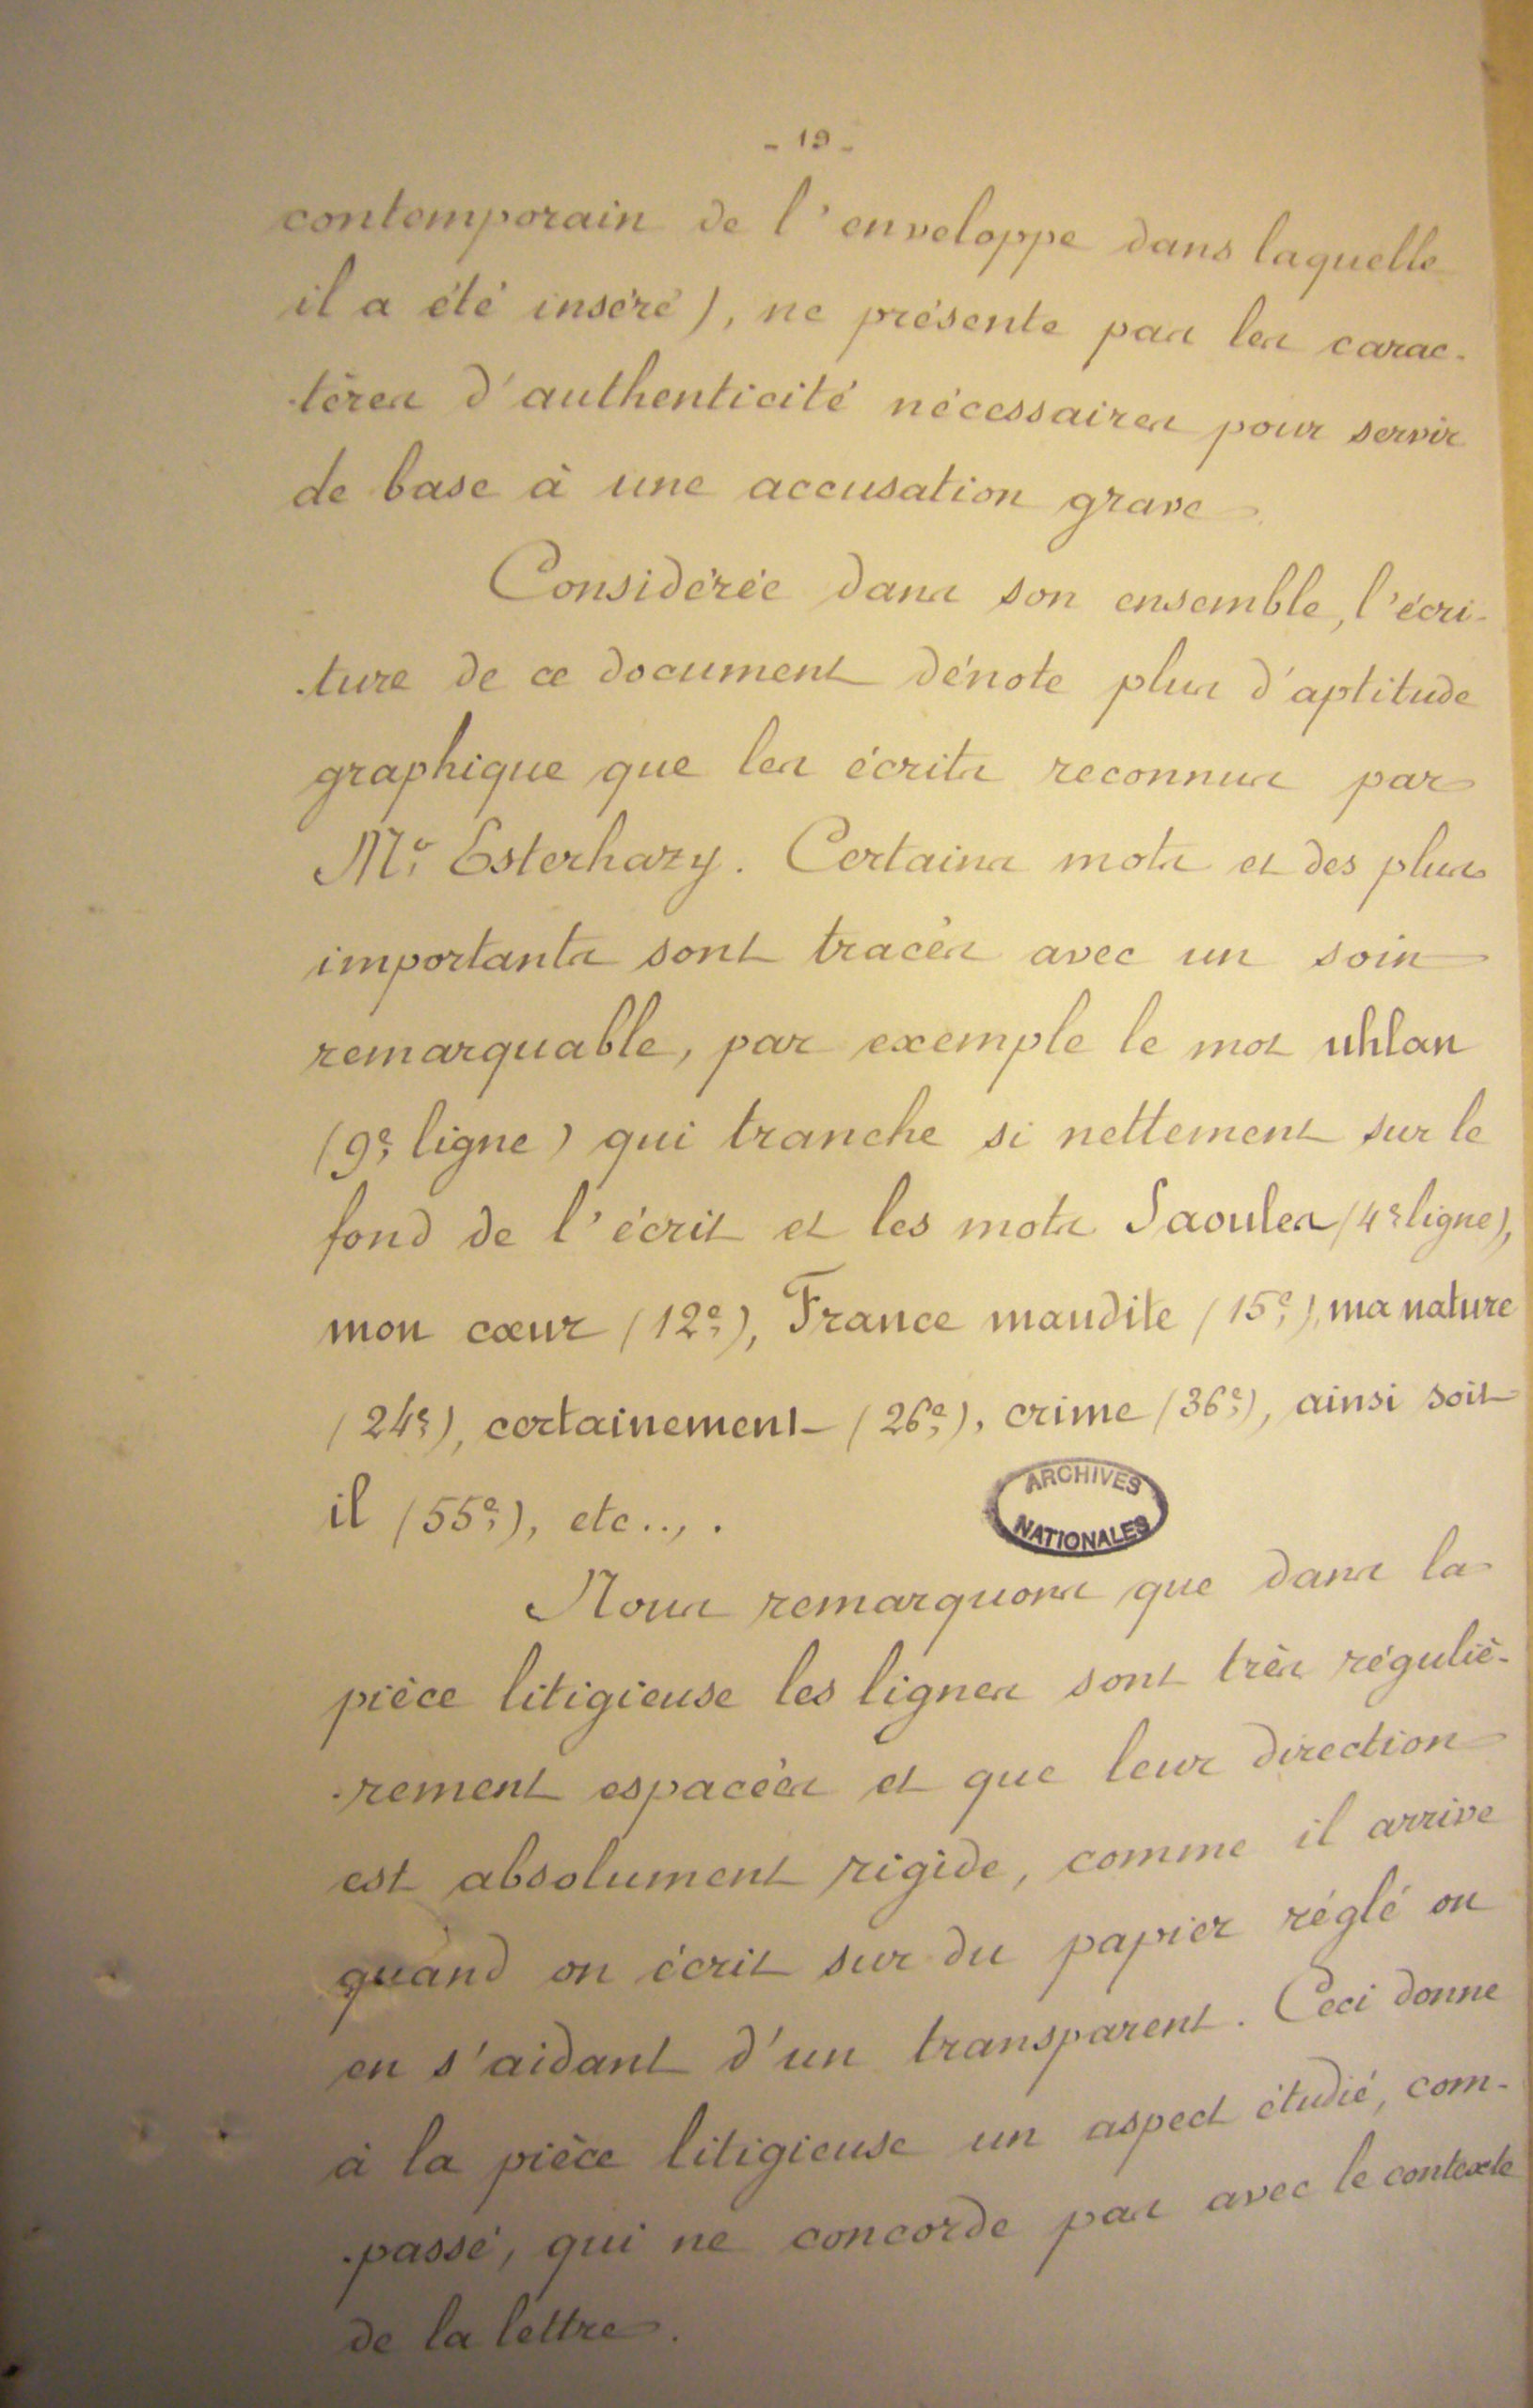 - 19 -
contemporain de l'enveloppe dans laquelle
il a été inséré), ne présente pas les carac-
-tères d'authenticité nécessaires pour servir
de base à une accusation grave.
Considérée dans son ensemble, l'écri-
-ture de ce document dénote plus d'aptitude
graphique que les écrits reconnus par
Mr Esterhazy. Certains mots et des plus
importants sont tracés avec un soin
remarquable, par exemple le mot uhlan
(9e ligne) qui tranche si nettement sur le
fond de l'écrit et les mots Saoules (4e ligne),
mon cœur (12e), France maudite (15e), ma nature
(24e), certainement (26e), crime (36e), ainsi soit
il (55e), etc...
ARCHIVES
NATIONALES
Nous remarquons que dans la
pièce litigieuse les lignes sont très réguliè-
-rement espacées et que leur direction
est absolument rigide, comme il arrive
quand on écrit sur du papier réglé ou
en s'aidant d'un transparent. Ceci donne
à la pièce litigieuse un aspect étudié, com-
-passé, qui ne concorde pas avec le contexte
de la lettre.